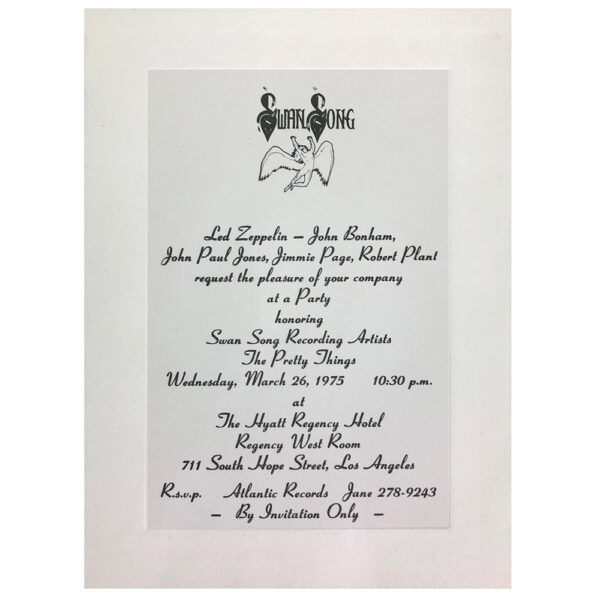 Swan Song
Led Zeppelin — John Bonham,
John Paul Jones, Jimmie Page, Robert Plant
request the pleasure of your company
at a Party
honoring
Swan Song Recording Artists
The Pretty Things
Wednesday, March 26, 1975 10:30 p.m.
at
The Hyatt Regency Hotel
Regency West Room
711 South Hope Street, Los Angeles
R.s.v.p. Atlantic Records Jane 278-9243
— By Invitation Only —